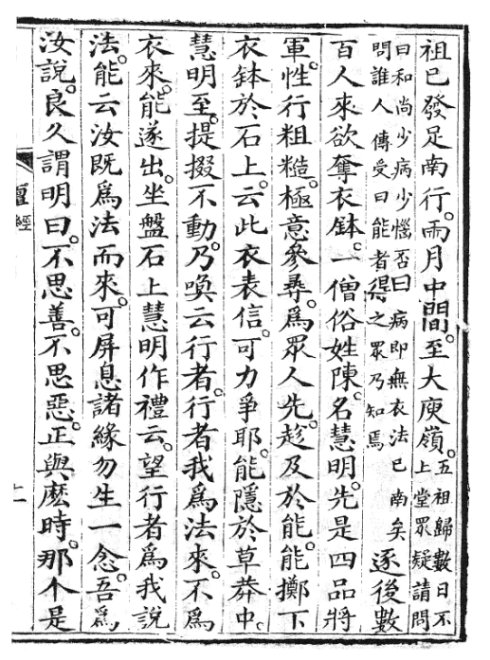 祖已發足南行。兩月中間。至大庾嶺。五祖歸數日不
上堂眾疑請問
曰和尚少病少惱否曰病即無衣法已南矣
問誰人傳受曰能者得之眾乃知焉逐後數
百人來欲奪衣鉢。一僧俗姓陳。名慧明。先是四品將
軍。性行粗糙。極意參尋。爲眾人先。趁及於能。能擲下
衣鉢於石上。云此衣表信。可力爭耶。能隱於草莽中。
慧明至。提掇不動。乃喚云行者。行者我爲法來。不爲
衣來。能遂出。坐盤石上慧明作禮云。望行者爲我說
法。能云汝既爲法而來。可屏息諸緣勿生一念。吾爲
汝說。良久謂明曰。不思善。不思惡。正與麽時。那个是
壇經